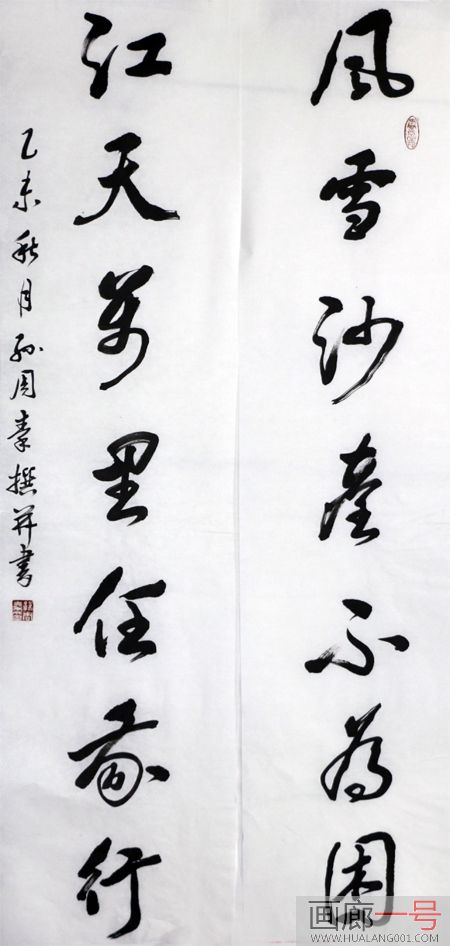 風雪沙不為困
江天萬里任行
乙未秋月孙周秦撰并書
画廊一号
WWW.HUALANG001.COM